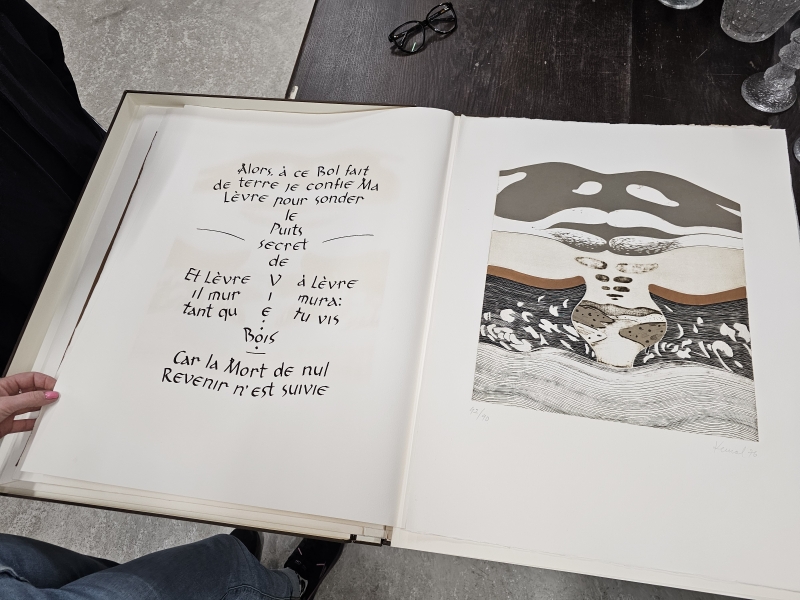 Alors, à ce Bol fait
de terre je confie Ma
Lèvre pour sonder
le
Puits
secret
de
Et Lèvre V à Lèvre
il mur i mura:
tant qu e tu vis
:
Bois
Car la Mort de nul
Revenir n'est suivie